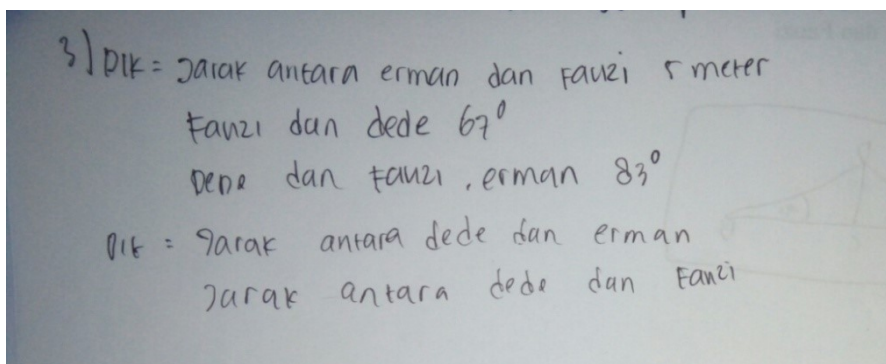 3) DIK = Jarak antara erman dan Fauzi 5 meter
Fauzi dan dede 67°
Dede dan Fauzi, erman 83°
Dit = Jarak antara dede dan erman
Jarak antara dede dan Fauzi